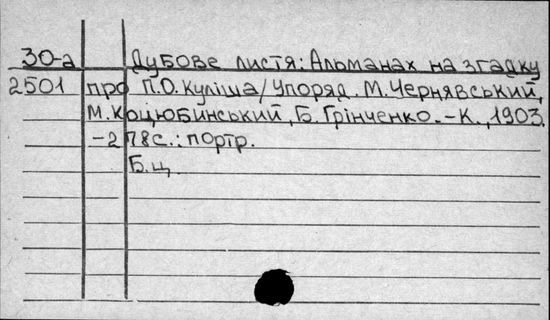 30-а Дубове листя: Альманах на згадку
2501 про П.О.Куліша/Упоряд. М.Чернявський,
М.Коцюбинський, Б.Грінченко.-К.,1903.
-278с.: портр.
Б.ц.